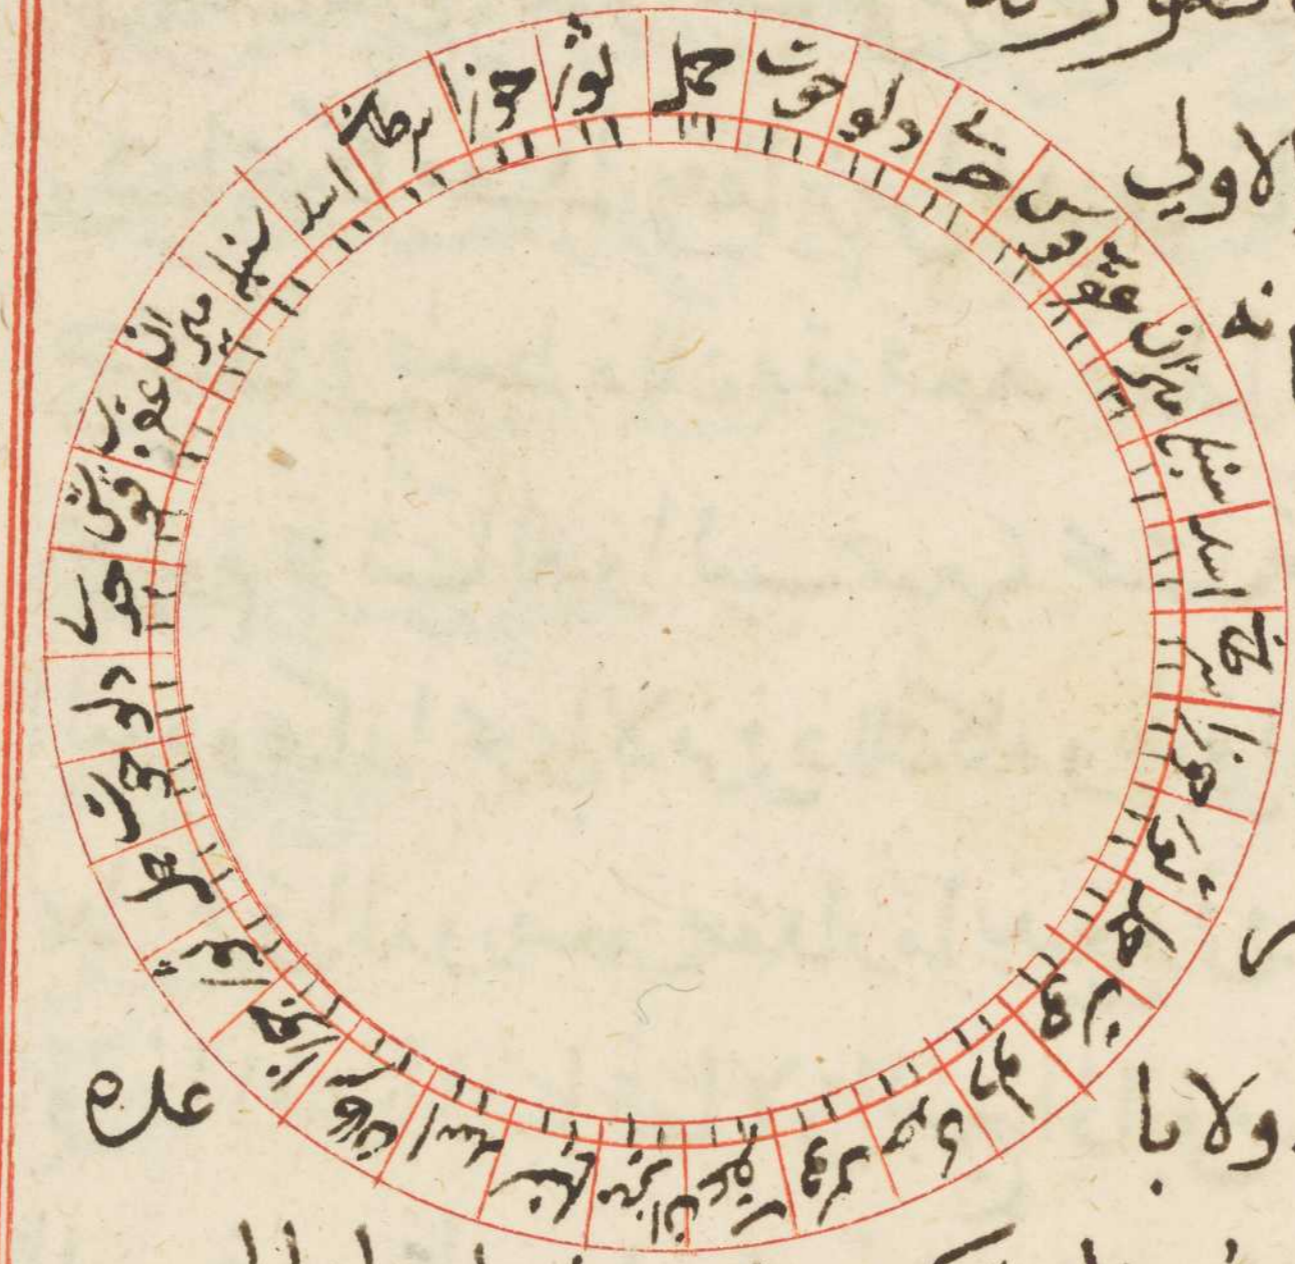 لاولي
حمل
ثور
جوزا
سرطان
اسد
سنبله
ميزان
عقرب
قوس
جدي
دلو
حوت
حمل
ثور
جوزا
سرطان
اسد
سنبله
ميزان
عقرب
قوس
جدي
دلو
حوت
حمل
ثور
جوزا
سرطان
اسد
سنبله
ميزان
عقرب
قوس
جدي
دلو
حوت
ولا با